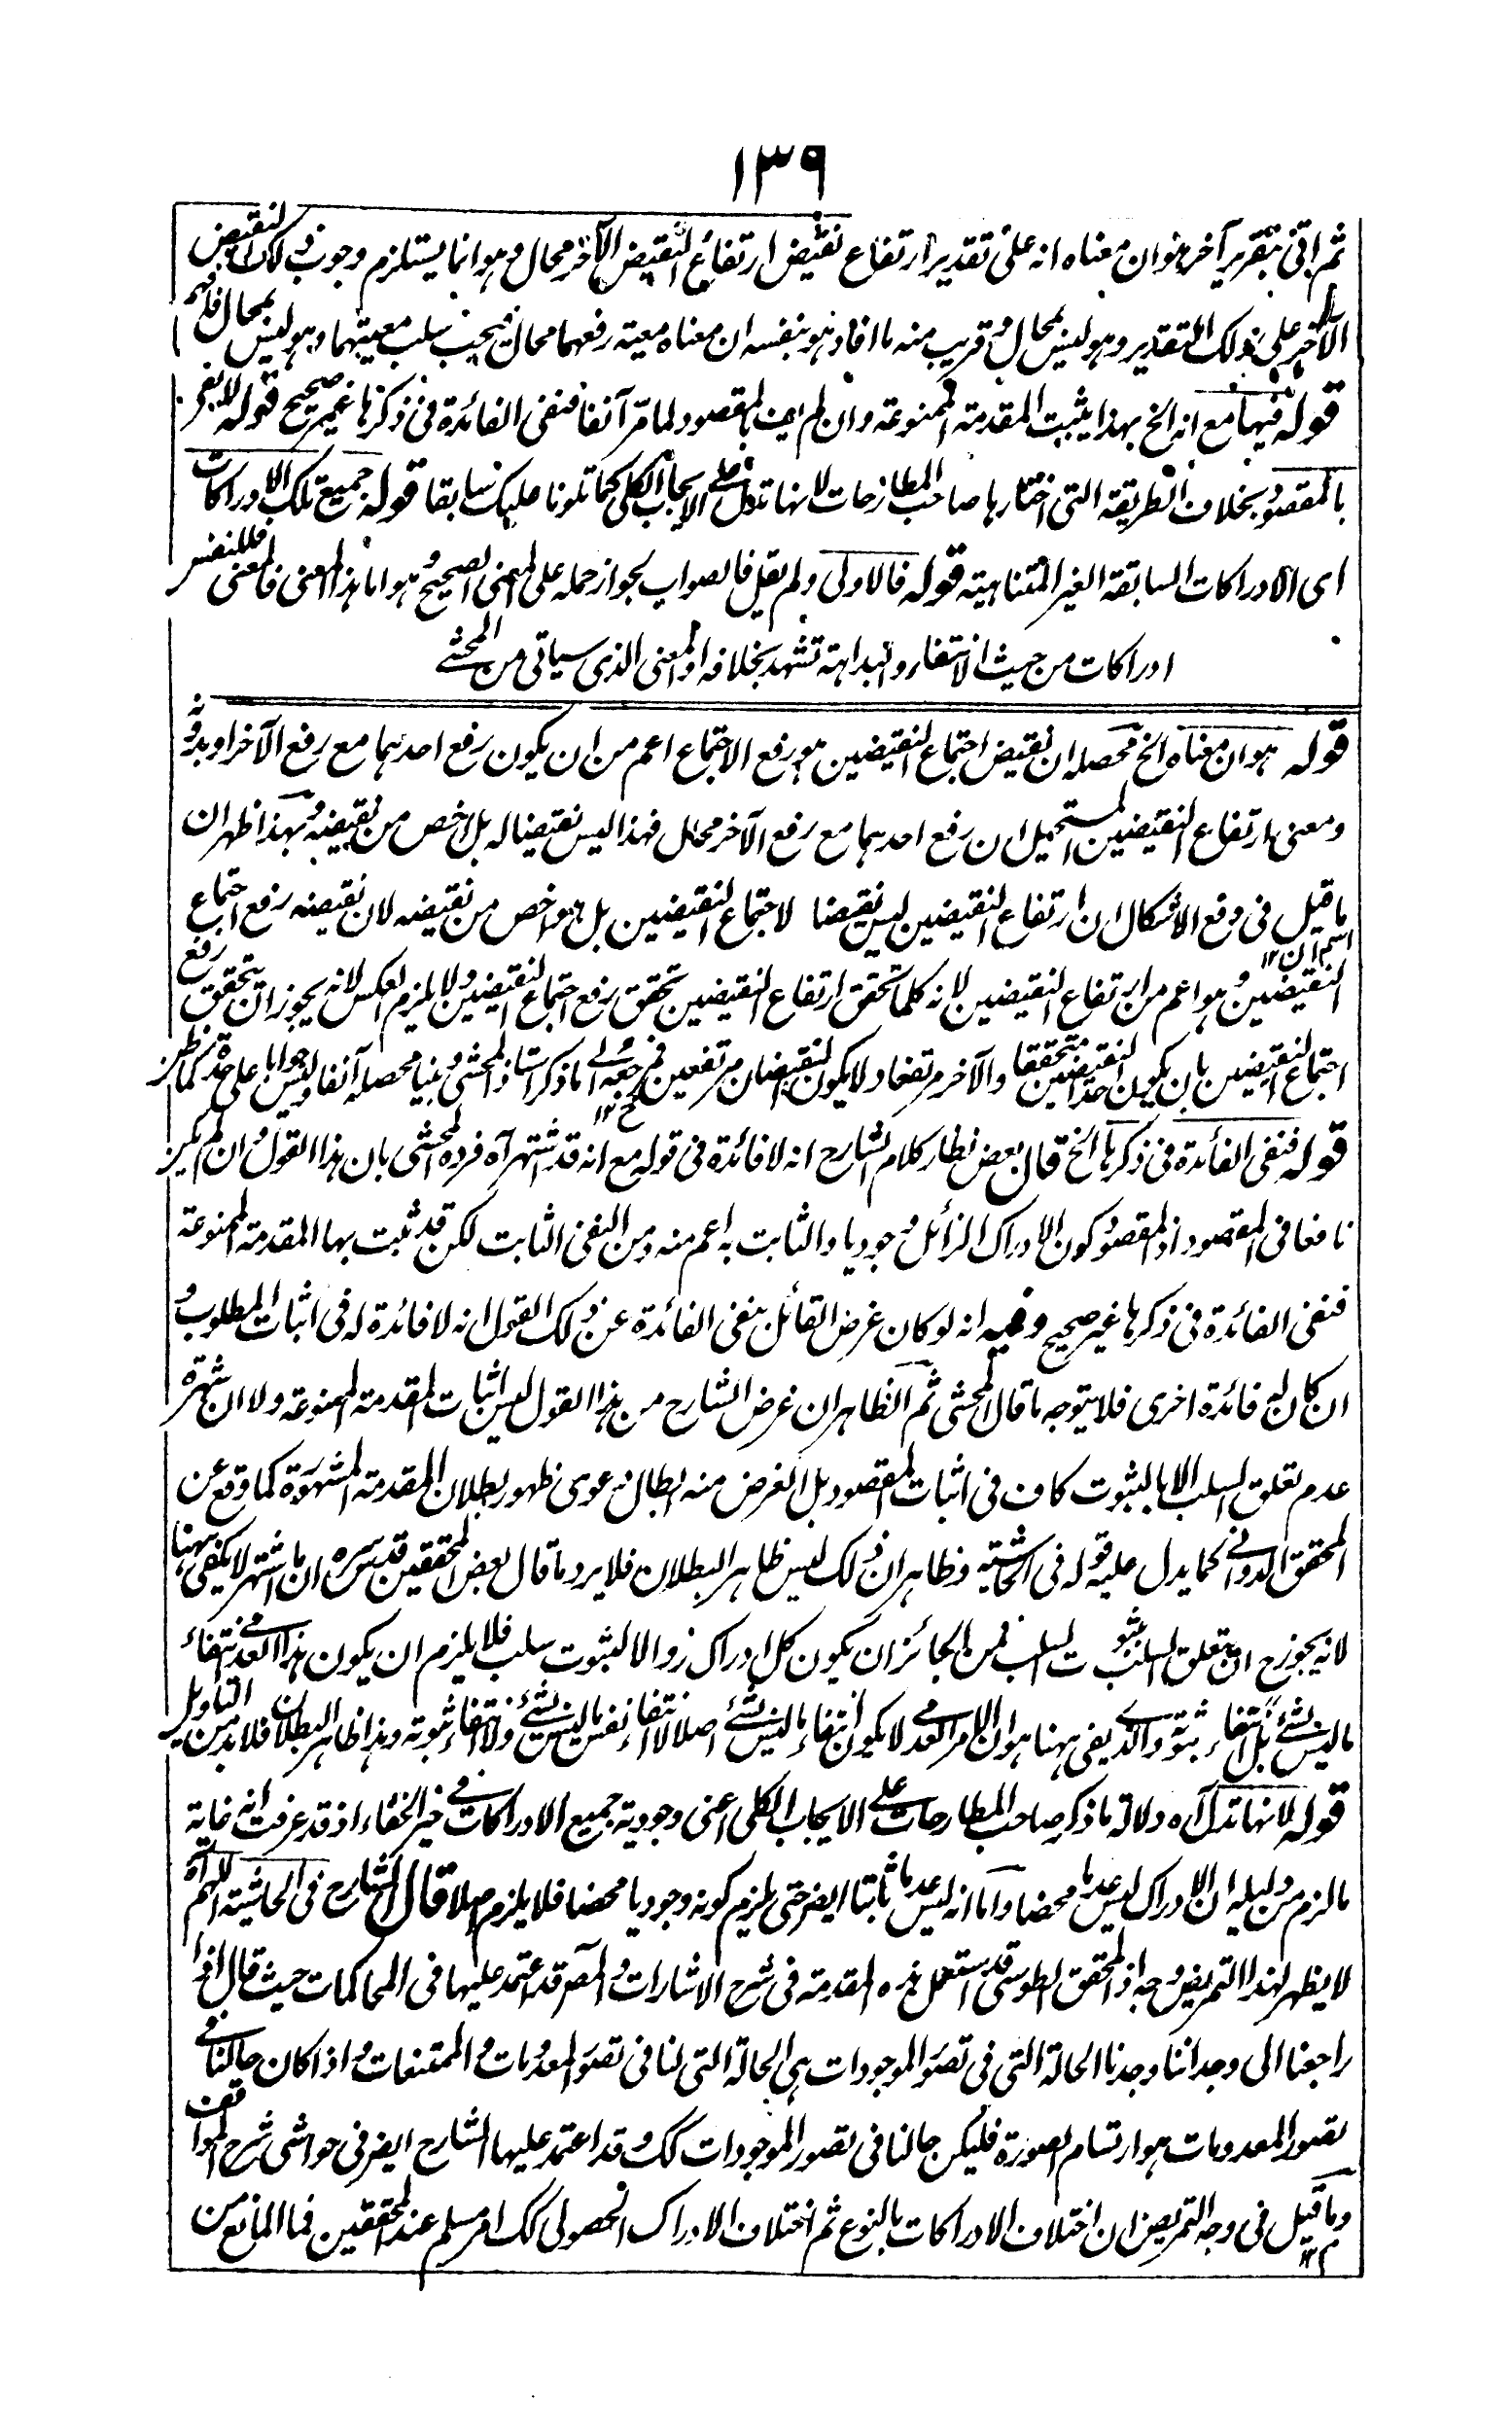 ١٣٩
ثم اتى بتقرير آخر هو ان معناه انه على تقدير ارتفاع نقيض ارتفاع النقيض الآخر محال وهو انما يستلزم وجوب ذلك النقيض
الآخر على ذلك التقدير وهو ليس بمحال وقريب منه ما افاد هو بنفسه ان معناه معية رفعهما محال فيجب سلب معيتهما وهو ليس بمحال فافهم
قوله فيها مع انه الخ بهذا يثبت المقدمة الممنوعة وان لم يف بالمقصود لما مر آنفا فنفى الفائدة فى ذكرها غير صحيح قوله لا يفى
بالمقصود بخلاف الطريقة التى اختارها صاحب المطارحات لانها تدل على الايجاب الكلى كما تلونا عليك سابقا قوله جميع تلك الادراكات
اى الادراكات السابقة الغير المتناهية قوله فالاولى ولم يقل فالصواب لجواز حمله على المعنى الصحيح وهو اما هذا المعنى فالمعنى فللنفس
ادراكات من حيث الانتفاء والبداهة تشهد بخلافه او المعنى الذى سياتى من المحشى
قوله هو ان معناه الخ محصله ان نقيض اجتماع النقيضين هو رفع الاجتماع اعم من ان يكون رفع احدهما مع رفع الآخر او بدونه
ومعنى ارتفاع النقيضين المستحيل ان رفع احدهما مع رفع الآخر محال فهذا ليس نقيضا له بل اخص من نقيضه وبهذا ظهر ان
ما قيل فى دفع الاشكال ان ارتفاع النقيضين ليس نقيضا لاجتماع النقيضين بل هو اخص من نقيضه لان نقيضه رفع اجتماع
اسم ان ١٢
النقيضين وهو اعم من ارتفاع النقيضين لانه كلما تحقق ارتفاع النقيضين تحقق رفع اجتماع النقيضين ولا يلزم العكس لانه يجوز ان يتحقق رفع
اجتماع النقيضين بان يكون احد النقيضين متحققا والآخر مرتفعا ولا يكون النقيضان مرتفعين فمرجعه الى ما ذكر استاذ المحشى وبينا محصله آنفا وليس جوابا على حدة كما ظن
قوله فنفى الفائدة فى ذكرها الخ قال بعض نظار كلام الشارح انه لا فائدة فى قوله مع انه قد اشتهر آه فرده المحشى بان هذا القول وان لم يكن
نافعا فى المقصود اذ المقصود كون الادراك الزائل وجوديا والثابت به اعم منه ومن النفى الثابت لكن قد ثبت بها المقدمة الممنوعة
فنفى الفائدة فى ذكرها غير صحيح وفيه انه لو كان غرض القائل بنفى الفائدة عن ذلك القول انه لا فائدة له فى اثبات المطلوب و
ان كان له فائدة اخرى فلا يتوجه ما قال المحشى ثم الظاهر ان غرض الشارح من هذا القول ليس اثبات المقدمة الممنوعة ولا ان شهرة
عدم تعلق السلب الا بالثبوت كاف فى اثبات المقصود بل الغرض منه ابطال دعوى ظهور بطلان المقدمة المشهورة كما وقع عن
المحقق الدوانى كما يدل عليه قوله فى الحاشية وظاهر ان ذلك ليس ظاهر البطلان فلا يرد ما قال بعض المحققين قدس سره ان ما اشتهر لا يكفى ههنا
لانه يجوز ح ان يتعلق السلب بثبوت السلب فمن الجائز ان يكون كل ادراك زوالا لثبوت سلب فلا يلزم ان يكون هذا العدمى انتفاء
ما ليس بشئ بل انتفاء ثبوته والذى يفى ههنا هو ان الامر العدمى لا يكون انتفاء ما ليس بشئ اصلا لا انتفاء نفس ما ليس بشئ ولا انتفاء ثبوته وهذا ظاهر البطلان فلا بد من التاويل
قوله لانها تدل آه دلالة ما ذكره صاحب المطارحات على الايجاب الكلى اعنى وجودية جميع الادراكات فى حيز الخفاء اذ قد عرفت انه غاية
ما لزم من دليله ان الادراك ليس عدما محضا واما انه ليس عدما ثابتا ايضر حتى يلزم كونه وجوديا محضا فلا يلزم اصلا قال الشارح فى الحاشية اللهم آه
لا يظهر لهذا التمريض وجه اذ المحقق الطوسى قد استعمل هذه المقدمة فى شرح الاشارات والمصر قد اعتمد عليها فى المحاكمات حيث قال اذا
راجعنا الى وجداننا وجدنا الحالة التى فى تصور الموجودات هى الحالة التى لنا فى تصور المعدومات والممتنعات واذا كان حالنا فى
تصور المعدومات هو ارتسام الصورة فليكن حالنا فى تصور الموجودات كك وقد اعتمد عليها الشارح ايضر فى حواشى شرح المواقف
وما قيل فى وجه التمريض ان اختلاف الادراكات بالنوع ثم اختلاف الادراك الحصولى كك امر مسلم عند المحققين فما المانع من
م ١٢